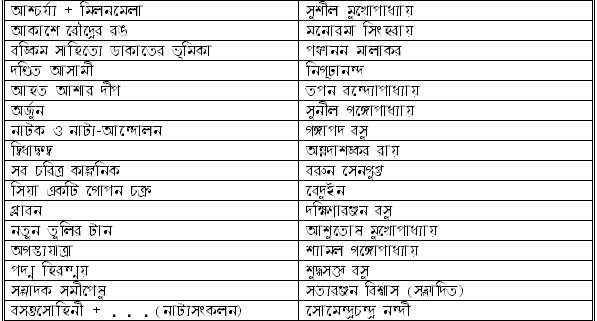 আশ্চর্য্য + মিলনমেলা সুশীল মুখোপাধ্যায়
আকাশে রৌদ্রের রঙ মনোরমা সিংহরায়
বঙ্কিম সাহিত্যে ডাকাতের ভূমিকা পঞ্চানন মালাকর
দণ্ডিত আসামী নিগূঢ়ানন্দ
আহত আশার দীপ তপন বন্দ্যোপাধ্যায়
অর্জুন সুনীল গঙ্গোপাধ্যায়
নাটক ও নাট্য-আন্দোলন গঙ্গাপদ বসু
দ্বিধাদ্বন্দ্ব অন্নদাশঙ্কর রায়
সব চরিত্র কাল্পনিক বরুন সেনগুপ্ত
সিয়া একটি গোপন চক্র বেদুইন
প্লাবন দক্ষিণারঞ্জন বসু
নতুন তুলির টান আশুতোষ মুখোপাধ্যায়
অগস্ত্যযাত্রা শ্যামল গঙ্গোপাধ্যায়
পদ্ম হিরন্ময় শুদ্ধসত্ত্ব বসু
সম্পাদক সমীপেষু সত্যরঞ্জন বিশ্বাস (সম্পাদিত)
বসন্তসোহিনী + . . . (নাট্যসংকলন) সোমেন্দ্রচন্দ্র নন্দী